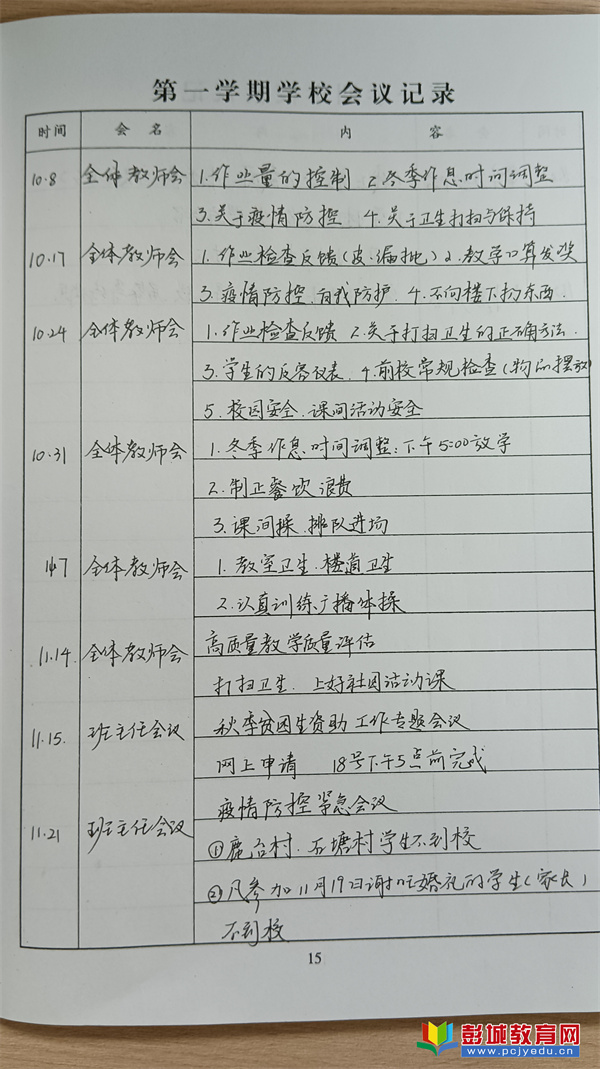 第一学期学校会议记录
时间 会名 内容
10.8 全体教师会 1.作业量的控制 2.冬季作息时间调整
3.关于疫情防控 4.关于卫生打扫与保持
10.17 全体教师会 1.作业检查反馈(皮、漏批) 2.教学口算发奖
3.疫情防控、自我防护. 4.不向楼下扔东西.
10.24 全体教师会 1.作业检查反馈 2.关于打扫卫生的正确方法.
3.学生的仪表. 4.前校常规检查(物品摆放)
5.校园安全.课间活动安全
10.31 全体教师会 1.冬季作息时间调整:下午5:00放学
2.制止餐饮浪费
3.课间操.排队进场
11.7 全体教师会 1.教室卫生.楼道卫生
2.认真训练广播体操
11.14. 全体教师会 高质量教学质量评估
打扫卫生. 上好社团活动课
11.15. 班主任会议 秋季贫困生资助工作专题会议
网上申请 18号下午5点前完成
11.21 班主任会议 疫情防控紧急会议
①鹿台村.石塘村学生不到校
②凡参加11月19日谢婚礼的学生(家长)
不到校
15
彭城教育网
www.pcjyedu.cn